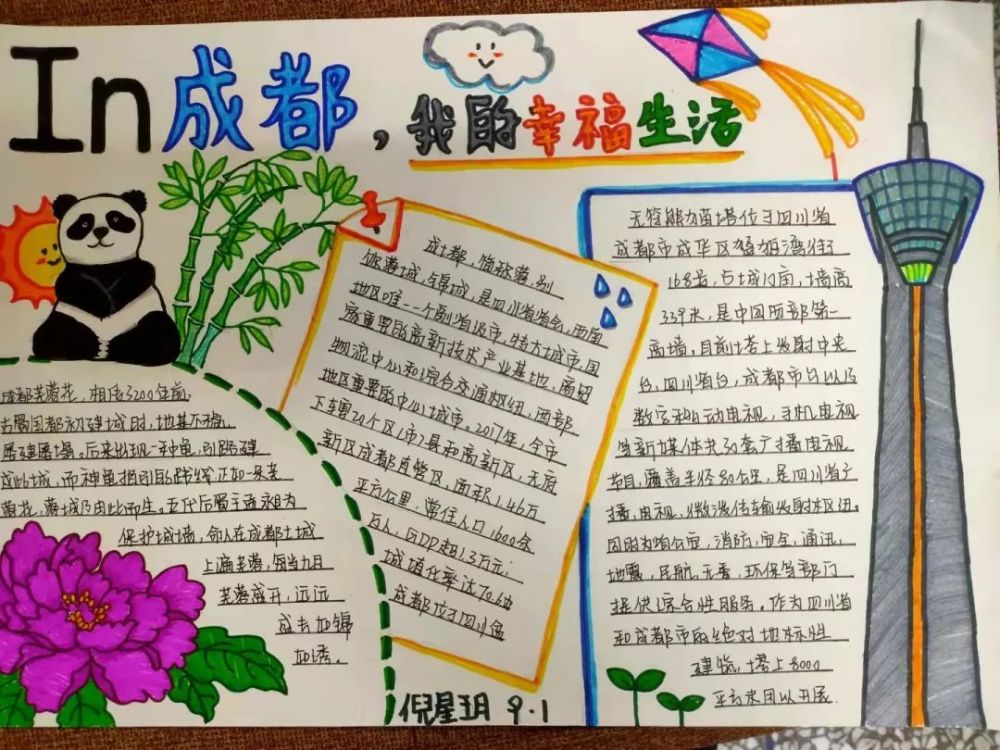 In成都，我的幸福生活
成都芙蓉花，相传3200年前，
古蜀国都初建城时，地基不稳，
屡建屡塌。后来出现一神龟，引路建
成此城，而神龟指引的路线正如一朵芙
蓉花，蓉城乃由此而生。五代后蜀主孟昶为
保护城墙，命人在成都土城
上遍芙蓉，每当九月
芙蓉盛开，远远
盛去如锦
如绣。
成都，简称蓉，别
称蓉城，锦城，是四川省省会，西南
地区唯一一个副省级市，特大城市，国
家重要的高新技术产业基地、商贸
物流中心和综合交通枢纽，西部
地区重要的中心城市。2017年，全市
下车20个区（市）县和高新区，天府
新区成都直管区，面积1.46万
平方公里，常住人口1600余
万人，GDP超1.3万元；
城填化率达70.6%
成都位于四川盆
无签熊力苗塔位于四川省
成都市成华区猛追湾街
168号，占域17亩，塔高
339米，是中国西部第一
高塔，目前塔上发射中央
台，四川省台，成都市台以及
数字移动电视，手机电视
等新媒体共30套广播电视
节目，覆盖半径80公里，是四川省广
播，电视，微波传输发射枢纽。
同时为省公安，消防，安全，通讯，
地震，民航，无委，环保等部门
提供综合性服务。作为四川省
和成都市的绝对地标性
建筑，塔上8000
平方米团以开展
倪星玥 9.1